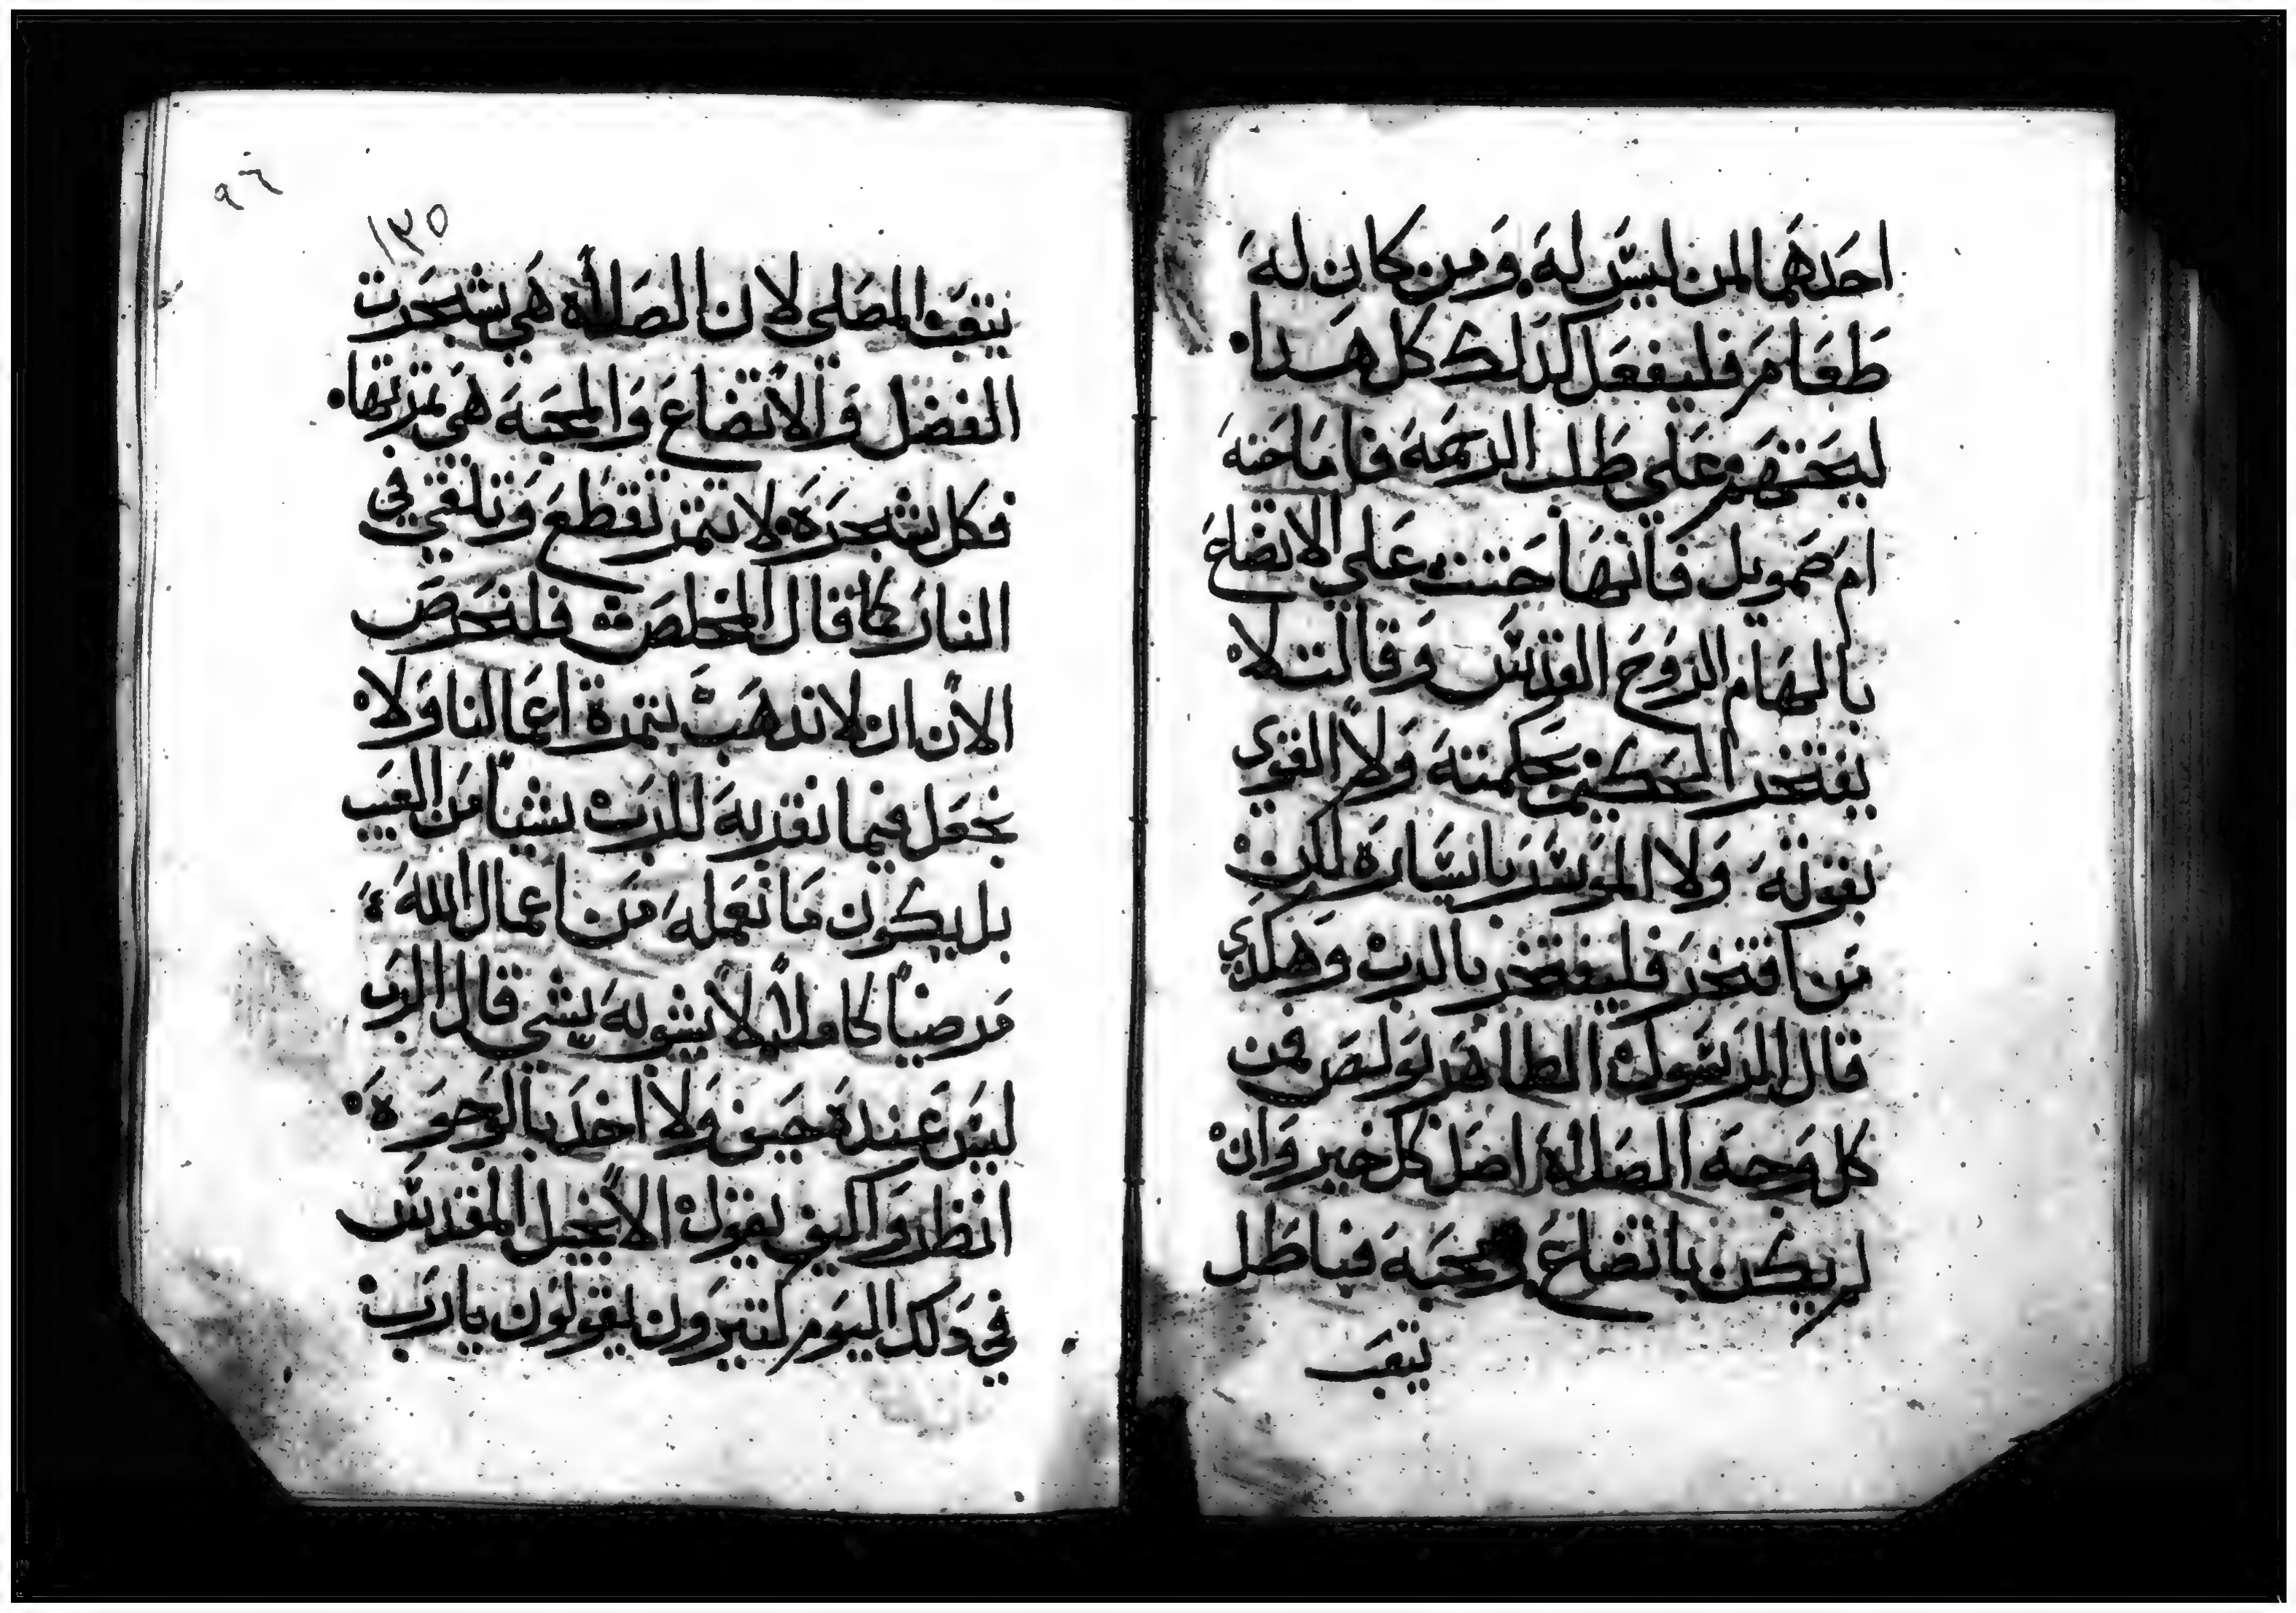 احدهما لمن ليس له ومن كان له
طعام فليفعل كذلك كل هدا
ليحتهم على طلب الرحمة فاما حنه
ام صمويل فانها حتت على الاتضاع
بالهام الروح القدس وقالت لا
يفتخر الحكيم بحكمته ولا القوي
بقوته ولا الموسر بايساره لكن
من افتخر فليفتخر بالرب وهكدي
قال الرسول الطاهر بولص فمن
كل وجهه الصلاه اصل كل خير وان
لم يكن باتضاع ومحبه فباطل
يتعب
٩٦
١٣٥
يتعب المصلي لان الصلاه هي شجرت
الفضل والاتضاع والمحبه هي تمرتها
فكل شجره لا تتمر تقطع وتلقي في
النار كما قال المخلص فلنحرص
الان ان لا تدهب تمرة اعمالنا ولا
نجعل فيما نقدبه للرب شيا من العيب
بل يكون ما نعمله من اعمال الله
مرضيا كاملا لا يشوبه شي قال الرب
ليس عنده حيف ولا اخد بالوجوه
انظروا كيف يقول الانجيل المقدس
في دلك اليوم كتيرون يقولون يارب